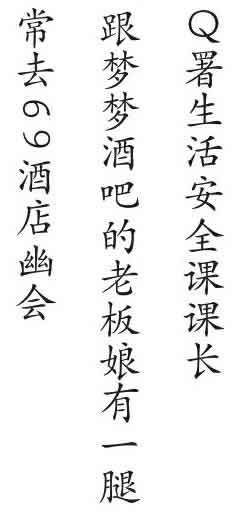 Q署生活安全课课长
跟梦梦酒吧的老板娘有一腿
常去69酒店幽会